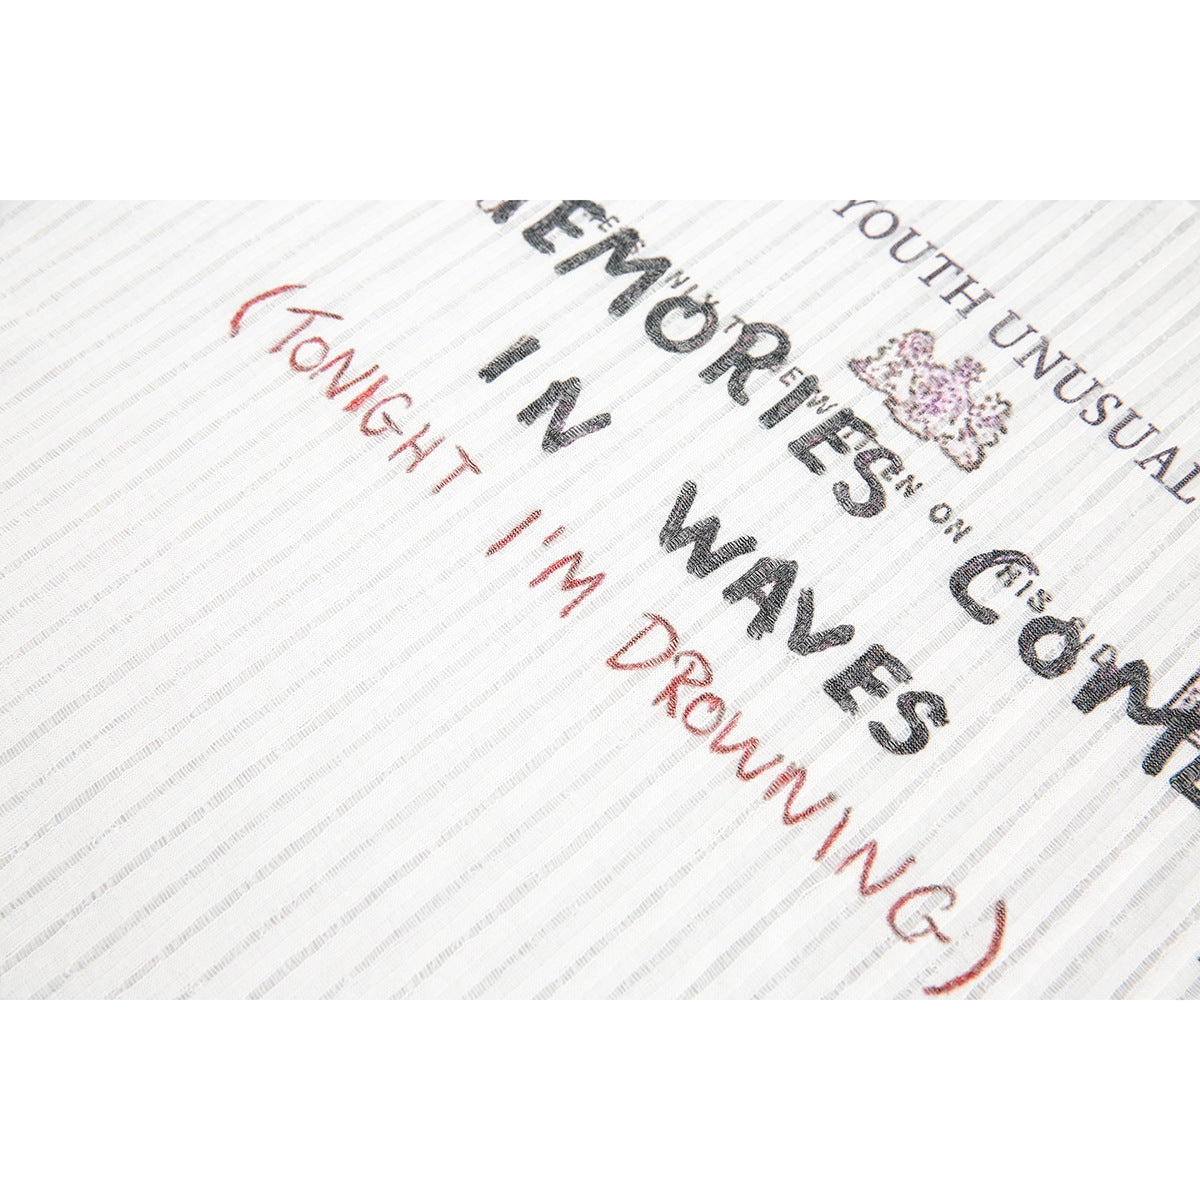 YOUTH UNUSUAL
MEMORIES COME
IN WAVES
(TONIGHT I'M DROWNING)